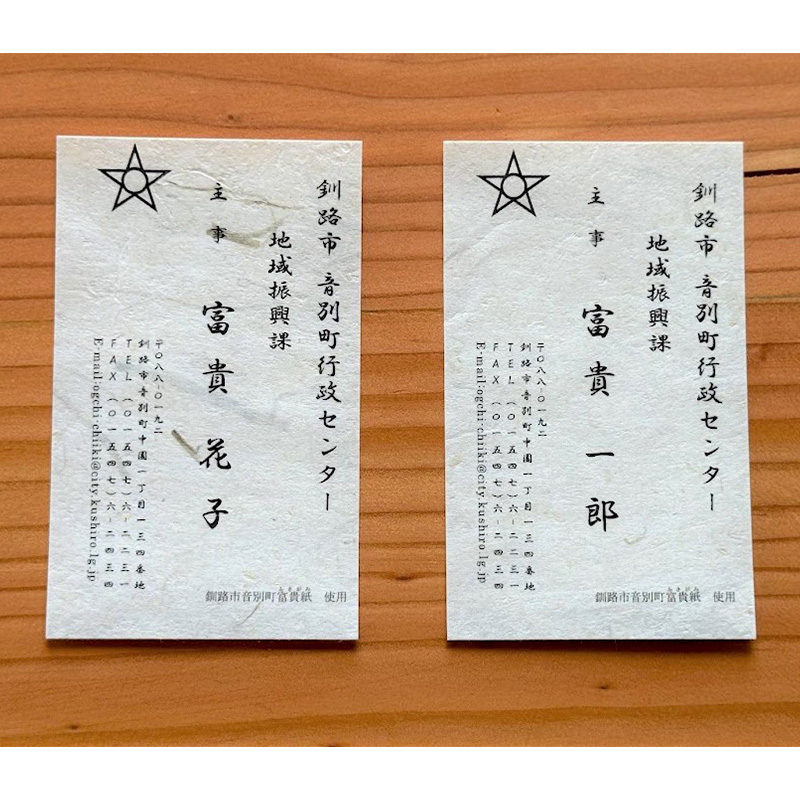 釧路市 音別町行政センター
地域振興課
主事 富貴 花子
〒〇八八-〇一九二
釧路市音別町中園一丁目一三四番地
TEL(〇一五四七)六-二二三一
FAX(〇一五四七)六-二四三四
E-mail:ogchi-chiiki@city.kushiro.lg.jp
釧路市音別町富貴紙 使用
釧路市 音別町行政センター
地域振興課
主事 富貴 一郎
〒〇八八-〇一九二
釧路市音別町中園一丁目一三四番地
TEL(〇一五四七)六-二二三一
FAX(〇一五四七)六-二四三四
E-mail:ogchi-chiiki@city.kushiro.lg.jp
釧路市音別町富貴紙 使用